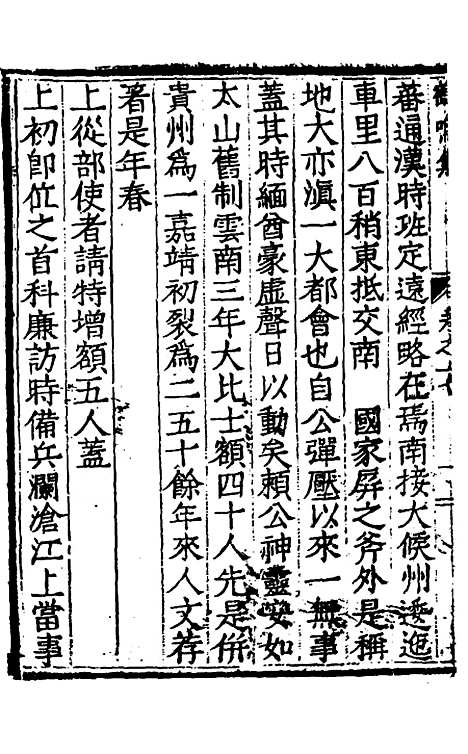 蕃通漢時班定遠經略在焉南接大候州邐迤
車里八百稍東抵交南　國家屏之斧外是稱
地大亦滇一大都會也自公彈壓以來一無事
蓋其時緬酋豪虛聲日以動矣賴公神靈安如
太山舊制雲南三年大比士額四十人先是併
貴州爲一嘉靖初裂爲二五十餘年來人文荐
著是年春
上從部使者請特增額五人蓋
上初卽位之首科廉訪時備兵瀾滄江上當事